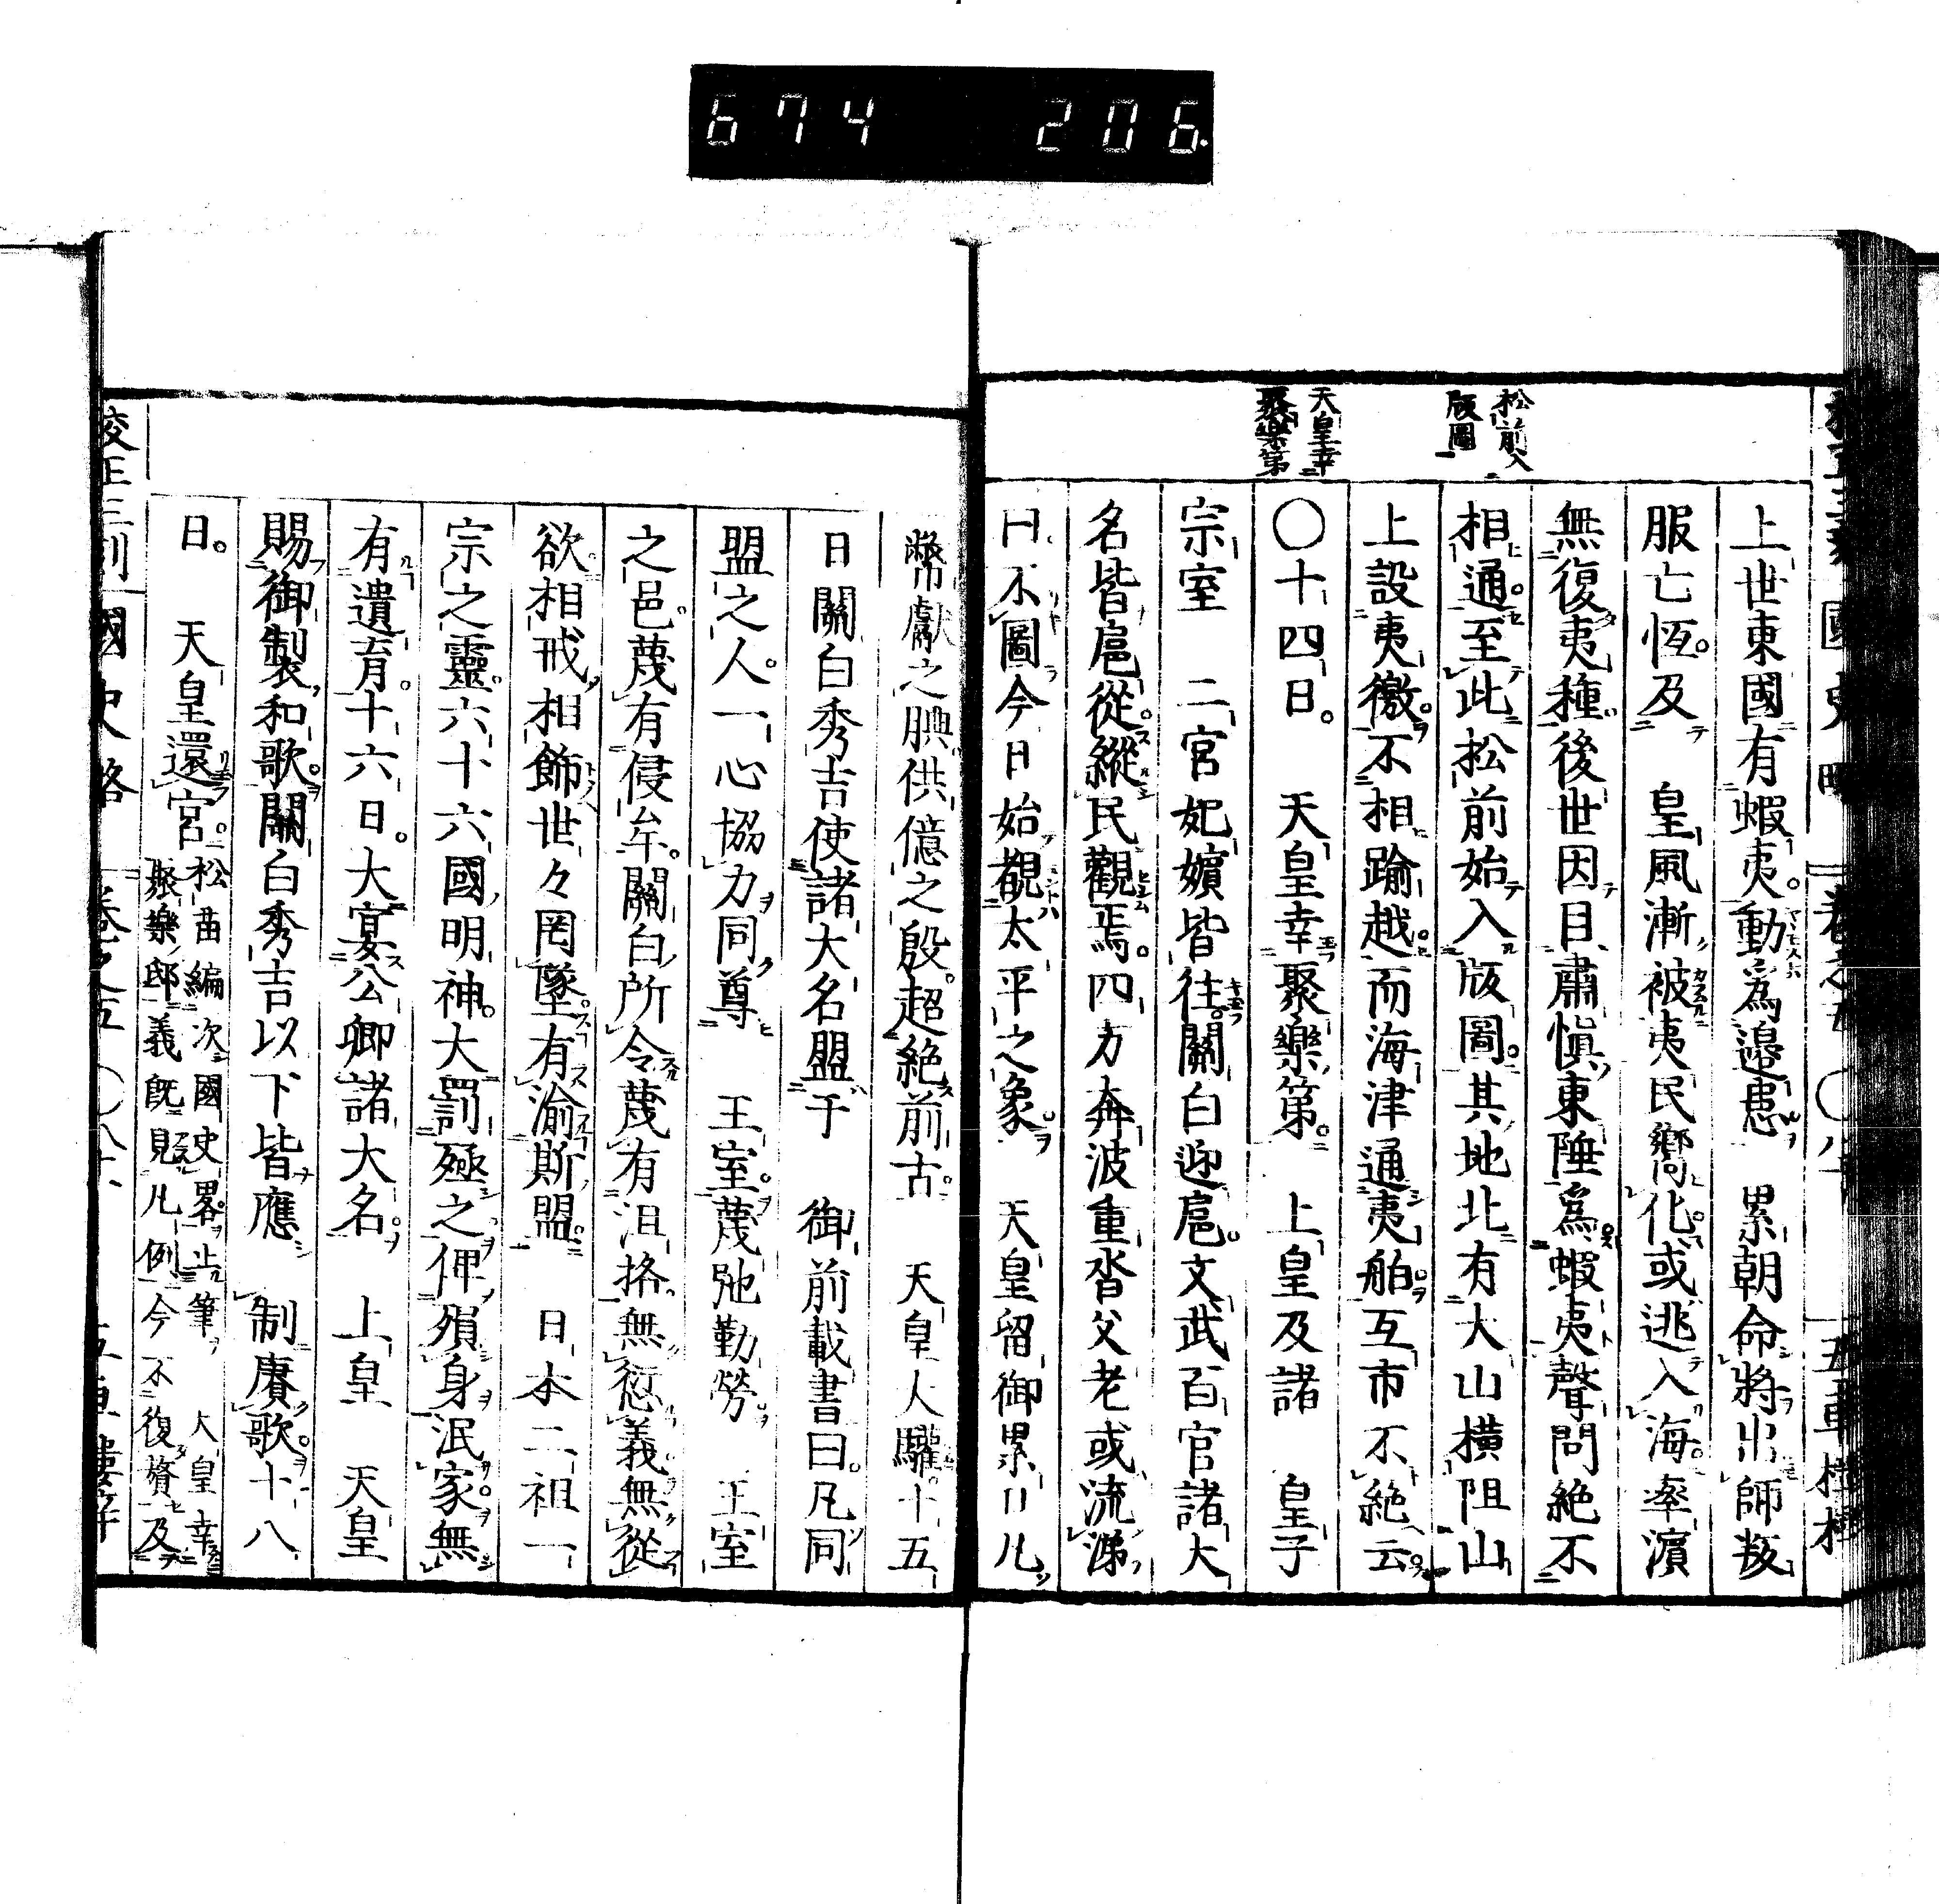 674 206.
松前入
版圖
天皇幸
聚樂第
上世東國有蝦夷。動爲邉患 累朝命將出師叛
服亡恆。及 皇風漸被夷民嚮化。或逃入海。率濵
無復夷種後世因目肅愼東陲爲蝦夷聲問絶不
相通。至此松前始入版圖。其地北有大山橫阻山
上設夷徼。不相踰越。而海津通夷舶。互市不絶云。
〇十四日。 天皇幸聚樂第。 上皇及諸 皇子
宗室 二宮妃嬪皆往。關白迎扈。文武百官諸大
名皆扈從。縱民觀焉。四方奔波重沓父老或流涕
曰不圖今日始覩太平之象。 天皇留御累日凡
幣獻之腆供億之殷。超絶前古。 天皇大驩。十五
日關白秀吉使諸大名盟于 御前載書曰。凡同
盟之人。一心協力同尊 王室。蔑弛勤勞。 王室
之邑。蔑有侵牟。關白所令蔑有沮挌。無愆義無從
欲相戒相飾世々罔墜。有渝斯盟。 日本二祖一
宗之靈。六十六國明神。大罰殛之俾殞身泯家。無
有遺育。十六日。大宴公卿諸大名。 上皇 天皇
賜御製和歌。關白秀吉以下皆應 制賡歌。十八
日。 天皇還宮。
松苗編次國史畧。止筆 天皇幸
聚樂邸義既見凡例今不復贅及
校正三刻 國史略 卷之五